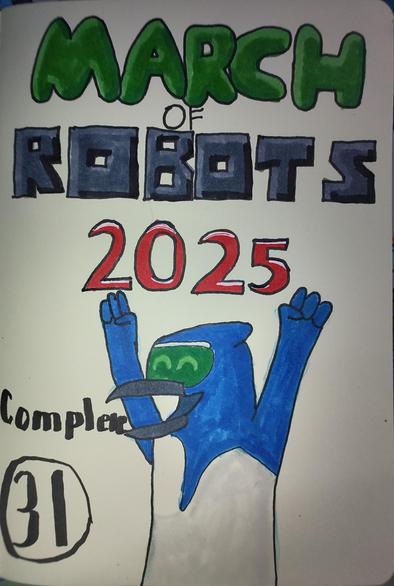 MARCH
OF
ROBOTS
2025
31